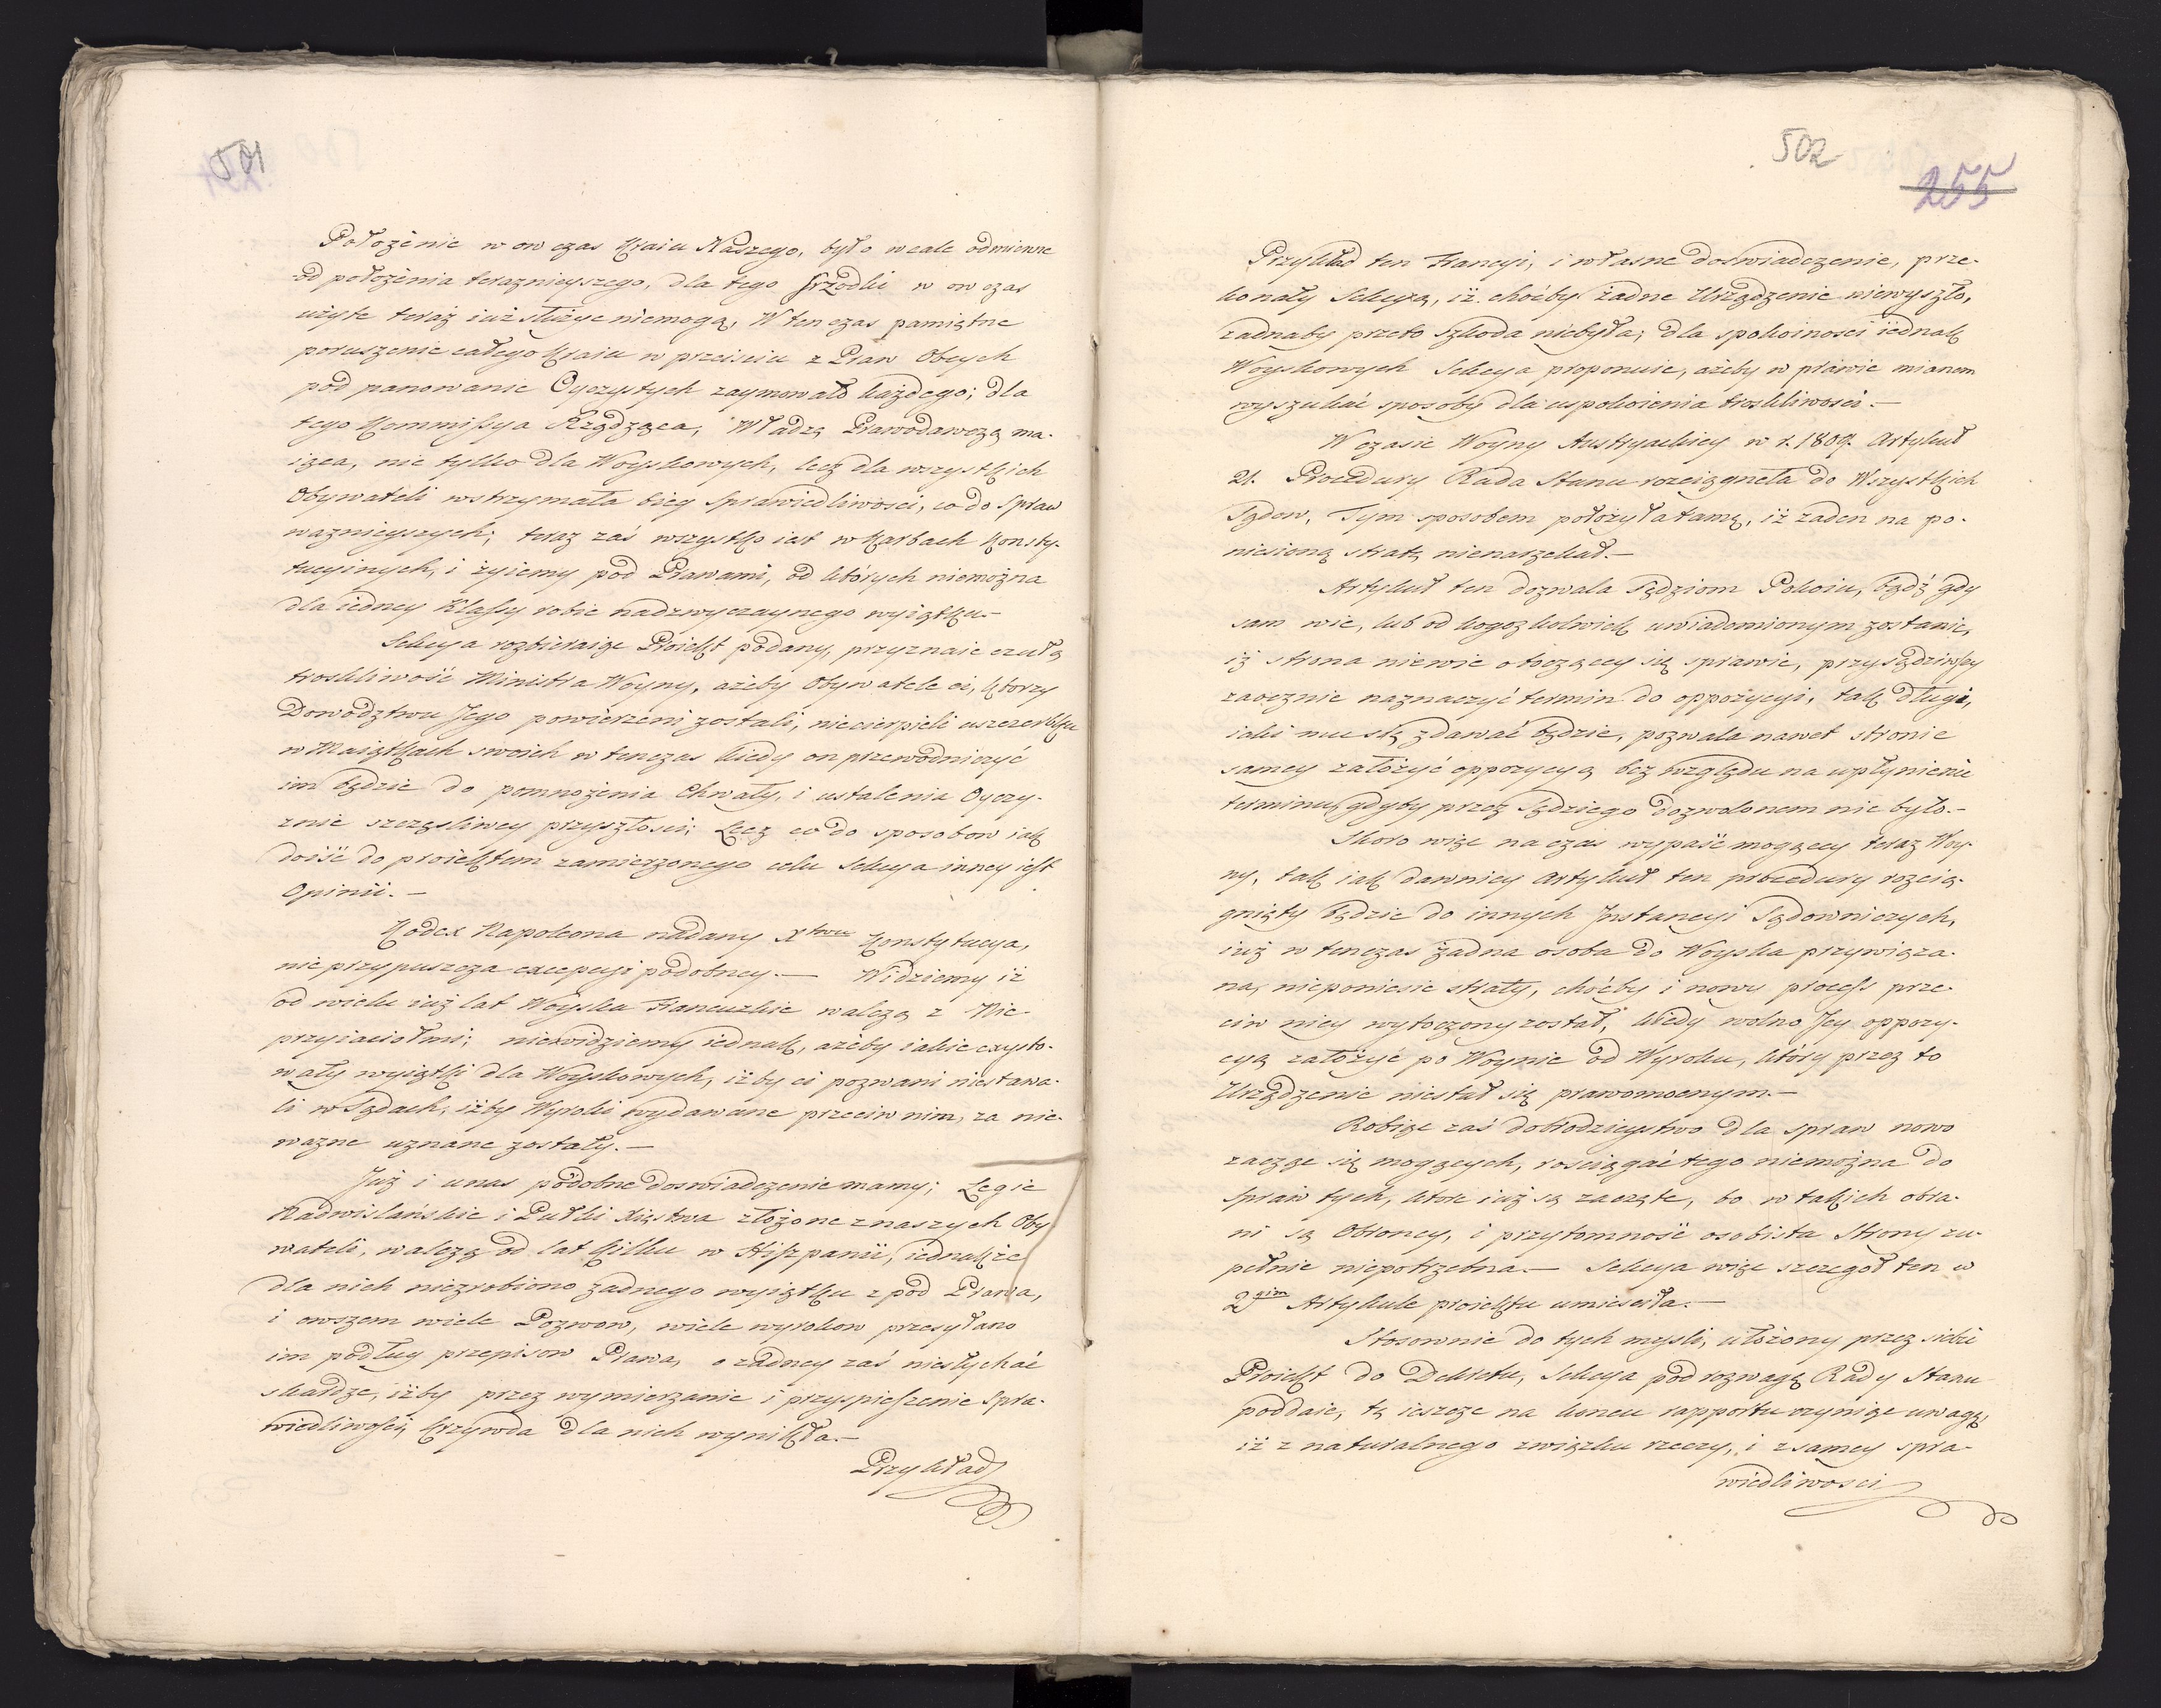 501
Położenie w ow czas Kraiu Naszego, było wcale odmienne
od położenia teraznieyszego, dla tego srzodki w ow czas
użyte teraz iuż służyc niemogą, W ten czas pamiętne
poruszenie całego Kraiu w przeisciu z Praw Obcych
pod panowanie Oyczystych zaymowało każdego; dla
tego Kommissya Rządząca, Władzę Prawodawczą ma-
iąca, nie tylko dla Woyskowych, lecz dla wszystkich
Obywateli wstrzymała bieg sprawiedliwosci, co do spraw
waznieyszych; teraz zaś wszystko iest w Karbach Konsty-
tucyinych, i żyiemy pod Prawami, od których niemożna
dla iedney Klassy robic nadzwyczaynego wyiątku.-
Sekcya rozbieraiąc Proiekt podany, przyznaie czułą
troskliwość Ministra Woyny, ażeby Obywatele ci, ktorzy
Dowodztwu Jego powierzeni zostali, niecierpieli uszczerbku
w Maiątkach swoich w tenczas kiedy on przewodniczyć
im będzie do pomnożenia Chwały, i ustalenia Oyczy-
znie szczęsliwey przyszłosci; Lecz co do sposobow iak
doiść do proiektem zamierzonego celu Sekcya inney iest
Opinii.-
Kodex Napoleona nadany Xtwu Konstytucya,
nie przypuszcza excepcyi podobney.- Widziemy iż
od wielu iuż lat Woyska Francuzkie walczą z Nie-
przyiaciołmi; niewidziemy iednak, ażeby iakie exysto-
wały wyiątki dla Woyskowych, iżby ci pozwani niestawa-
li w Sądach, iżby Wyroki wydawane przeciw nim, za nie-
wazne uznane zostały.-
Już i u nas podobne doswiadczenie mamy; Legie
Nadwislańskie i Pułki Xięstwa złożone z naszych Oby-
wateli, walczą od lat kilku w Hiszpanii, iednakże
dla nich niezrobiono żadnego wyiątku z pod Prawa,
i owszem wiele Pozwow, wiele wyrokow przesyłano
im podług przepisow Prawa, o żadney zaś niesłychać
skardze, iżby przez wymierzanie i przyspieszenie Spra-
wiedliwości, krzywda dla nich wynikła.-
Przykład
502
255
Przykład ten Francyi, i własne doświadczenie, prze-
konały Sekcyą, iż choćby żadne Urządzenie niewyszło,
żadnaby przeto szkoda niebyła; dla spokoinosci iednak
Woyskowych Sekcya proponuie, ażeby w prawie mianem
wyszukać sposoby dla uspokoienia troskliwosci.-
W czasie Woyny Austryackiey w r. 1809. Artykuł
21. Procedury Rada Stanu rozciągnęła do Wszystkich
Sądow, Tym sposobem położyła tamę, iż żaden na po-
niesioną stratę nienarzekał.-
Artykuł ten dozwala Sędziom Pokoiu, bądź gdy
sam wie, lub od kogożkolwiek uwiadomionym zostanie,
iż strona niewie o toczącey się sprawie, przysądziwszy
zaocznie naznaczyć termin do oppozycyi, tak długi,
iaki mu się zdawać będzie, pozwala nawet stronie
samey założyć oppozycyą bez względu na upłynienie
terminu, gdyby przez Sędziego dozwolonem nie było.-
Skoro więc na czas wypaść mogącey teraz Woy-
ny, tak iak dawniey Artykuł ten procedury rozcią-
gnięty będzie do innych Jnstancyi Sądowniczych,
iuż w tenczas żadna osoba do Woyska przywiąza-
na, nieponiesie straty, choćby i nowy process prze-
ciw niey wytoczony został, kiedy wolno Jey oppozy-
cyą założyć po Woynie od Wyroku, który przez to
Urządzenie niestał się prawomocnym.-
Robiąc zaś dobrodzieystwo dla spraw nowo
zacząc się mogących, rościągać tego niemożna do
Spraw tych, ktore iuż są zaczęte, bo w takich obra-
ni są Obroncy, i przytomność osobista Strony zu-
pełnie niepotrzebna.- Sekcya więc szczegoł ten w
2gim Artykule proiektu umiesciła.-
Stosownie do tych mysli, ułożony przez siebie
Proiekt do Dekretu, Sekcya pod rozwagę Rady Stanu
poddaie, tę ieszcze na koncu rapportu czyniąc uwagę,
iż z naturalnego związku rzeczy, i z samey spra-
wiedliwosci